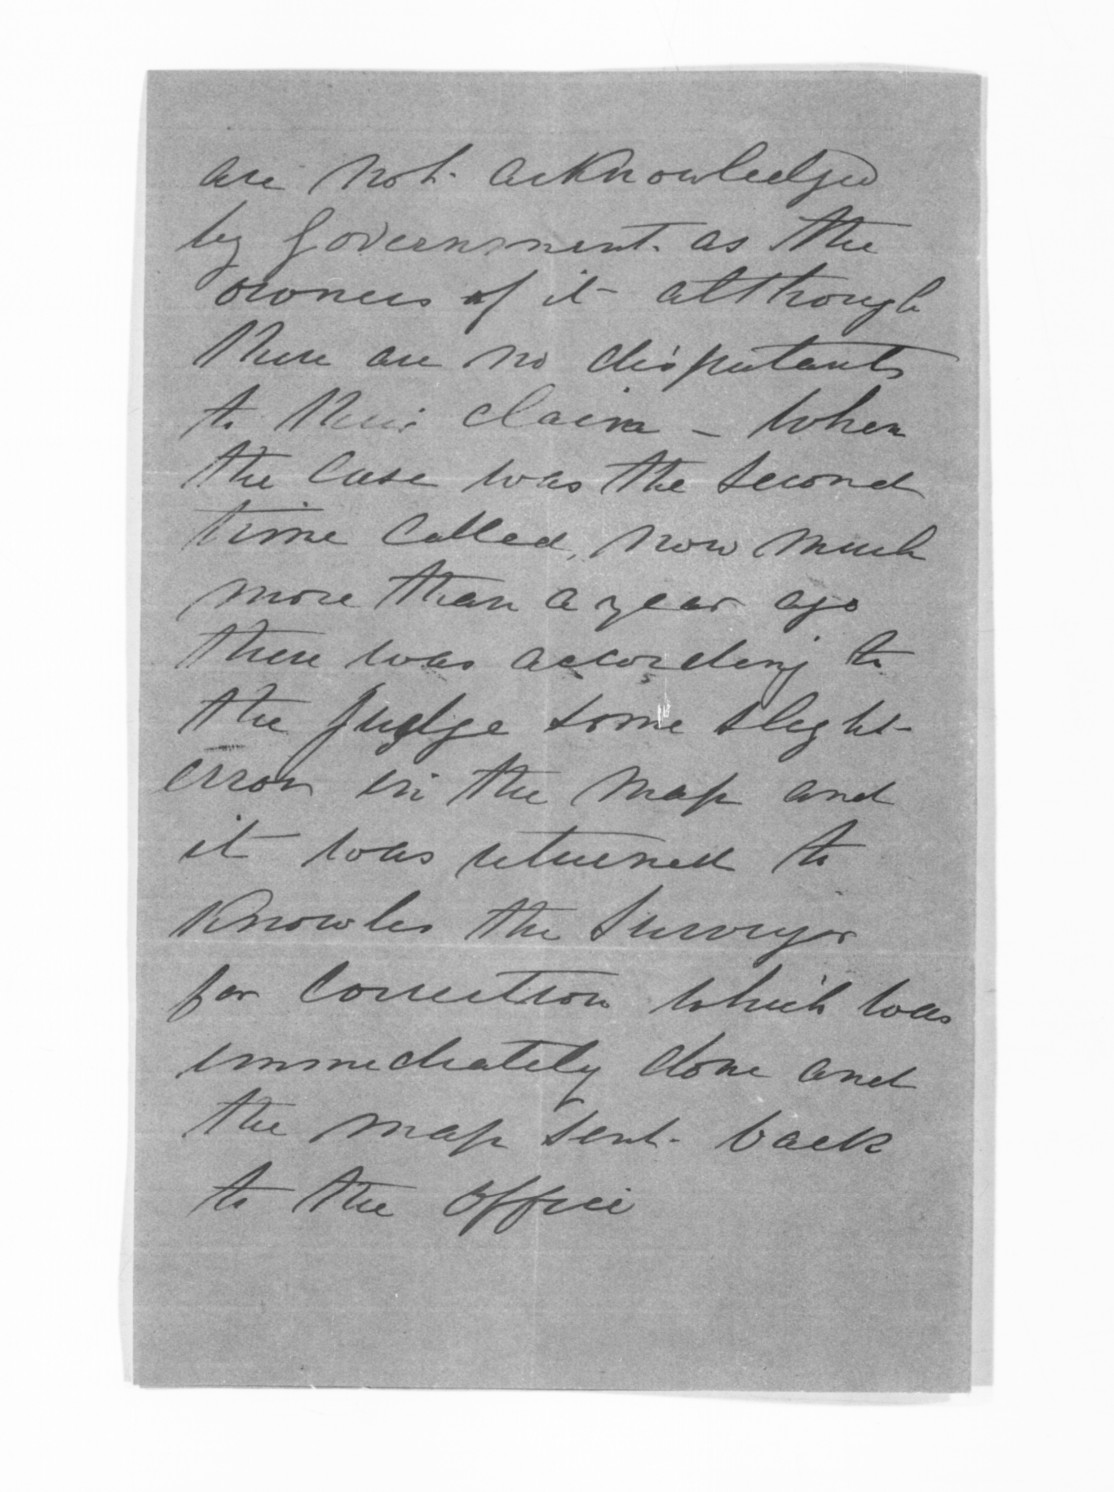 are not acknowledged
by Government as the
owners of it although
there are no disputants
to their claim – When
the case was the second
time called, now much
more than a year ago
there was according to
the Judge some slight
error in the map and
it was returned to
Knowles the Surveyor
for correction which was
immediately done and
the map sent back
to the office